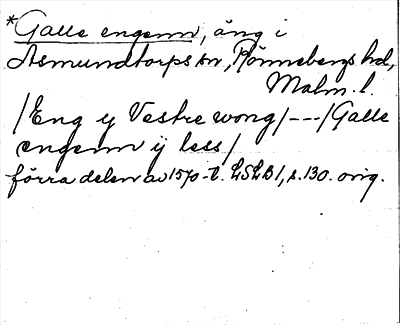 *Galle engenn, äng i
Asmundtorps sn, Rönnebergs hd,
Malm. l.
/Eng y Vestre wong/---/Galle
engenn ij less/
förra delen av 1570-t. LSLB1, s.130. orig.